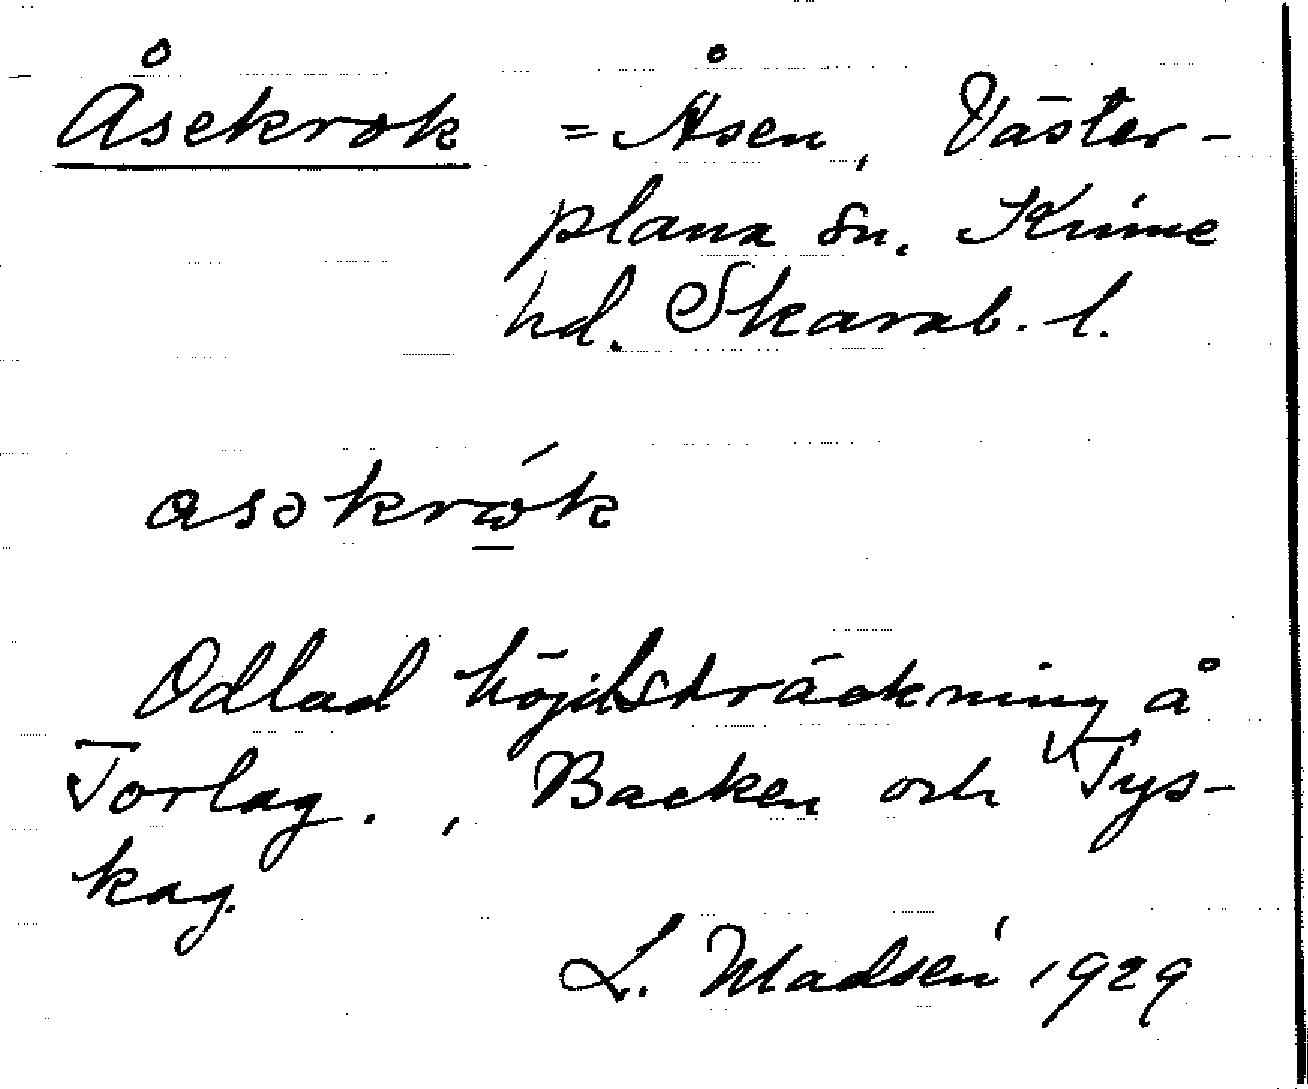 Åsekrok = Åsen, Väster-
plana sn. Kinne
hd. Skarab. l.
asəkrók
Odlad höjdsträckning å
Torlag., Backen och Tys-
kag.
L. Madsén 1929